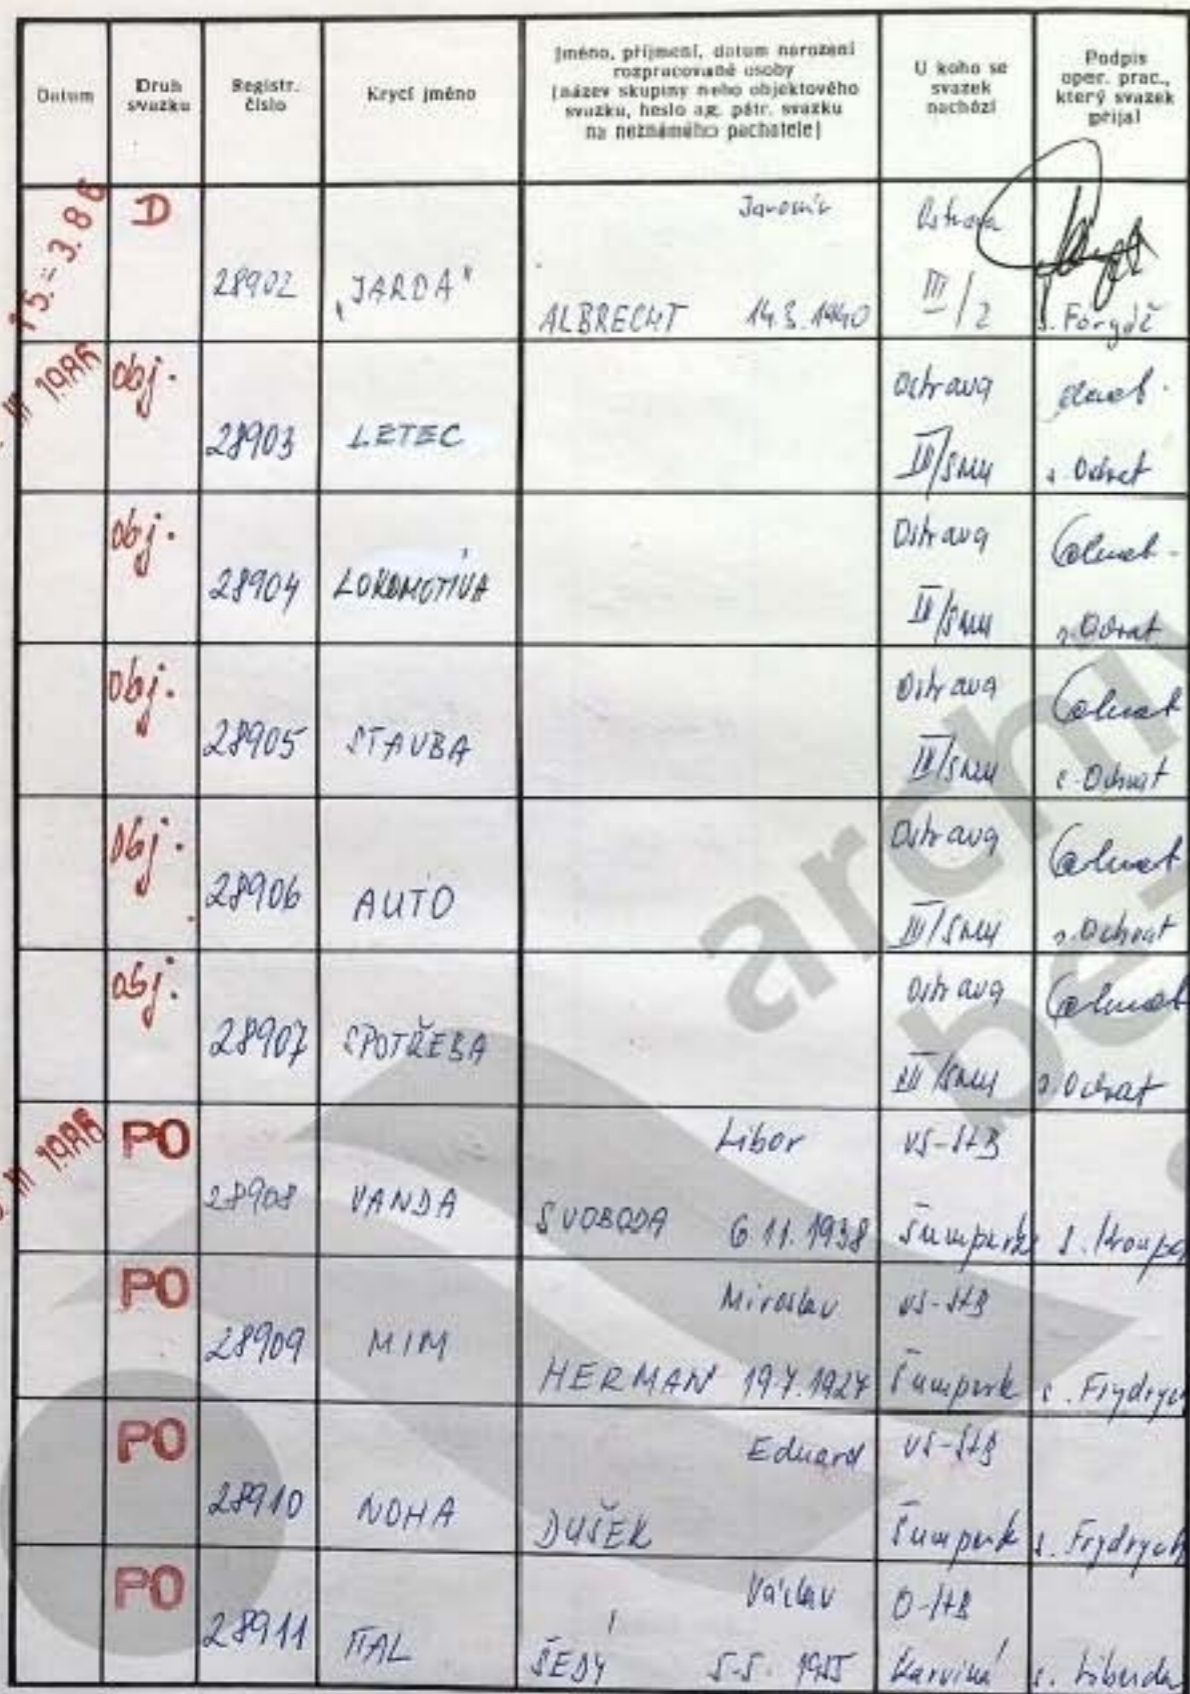 Datum
Druh
svazku
Registr.
číslo
Krycí jméno
Jméno, příjmení, datum narození
rozpracované osoby
(název skupiny nebo objektového
svazku, heslo ag. pátr. svazku
na neznámého pachatele)
U koho se
svazek
nachází
Podpis
oper. prac.,
který svazek
přijal
15. 3. 86
D
28902
„JARDA"
Jaromír
ALBRECHT 14. 3. 1940
Ostrava
III/2
s. Forgáč
III 1986
obj.
28903
LETEC
Ostrava
s. Odvat
obj.
28904
LOKOMOTIVA
Ostrava
obj.
28905
STAVBA
Ostrava
s. Ochvat
obj.
28906
AUTO
Ostrava
s. Ochvat
obj.
28907
SPOTŘEBA
Ostrava
s. Ochvat
III 1986
PO
28908
VANDA
Libor
SVOBODA 6 11. 1938
VS-StB
Šumperk
s. Kroupa
PO
28909
MIM
Miroslav
HERMAN 19 7. 1927
VS-StB
Šumperk
s. Frydrych
PO
28910
NOHA
Eduard
DUŠEK
VS-StB
Šumperk
s. Frydrych
PO
28911
ITAL
Václav
ŠEDÝ 5.5. 1955
O-StB
Karviná
s. Liberda
archiv